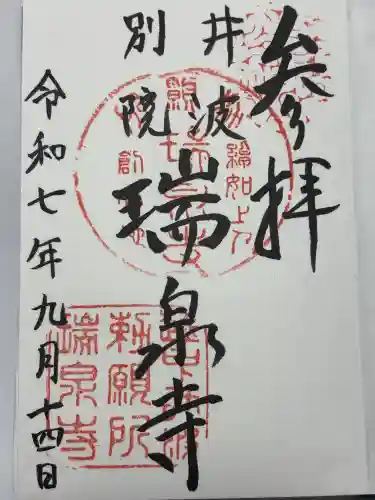 参拝
井波
別院
瑞泉寺
令和七年九月十四日
勅願所
瑞泉寺
綽如上人